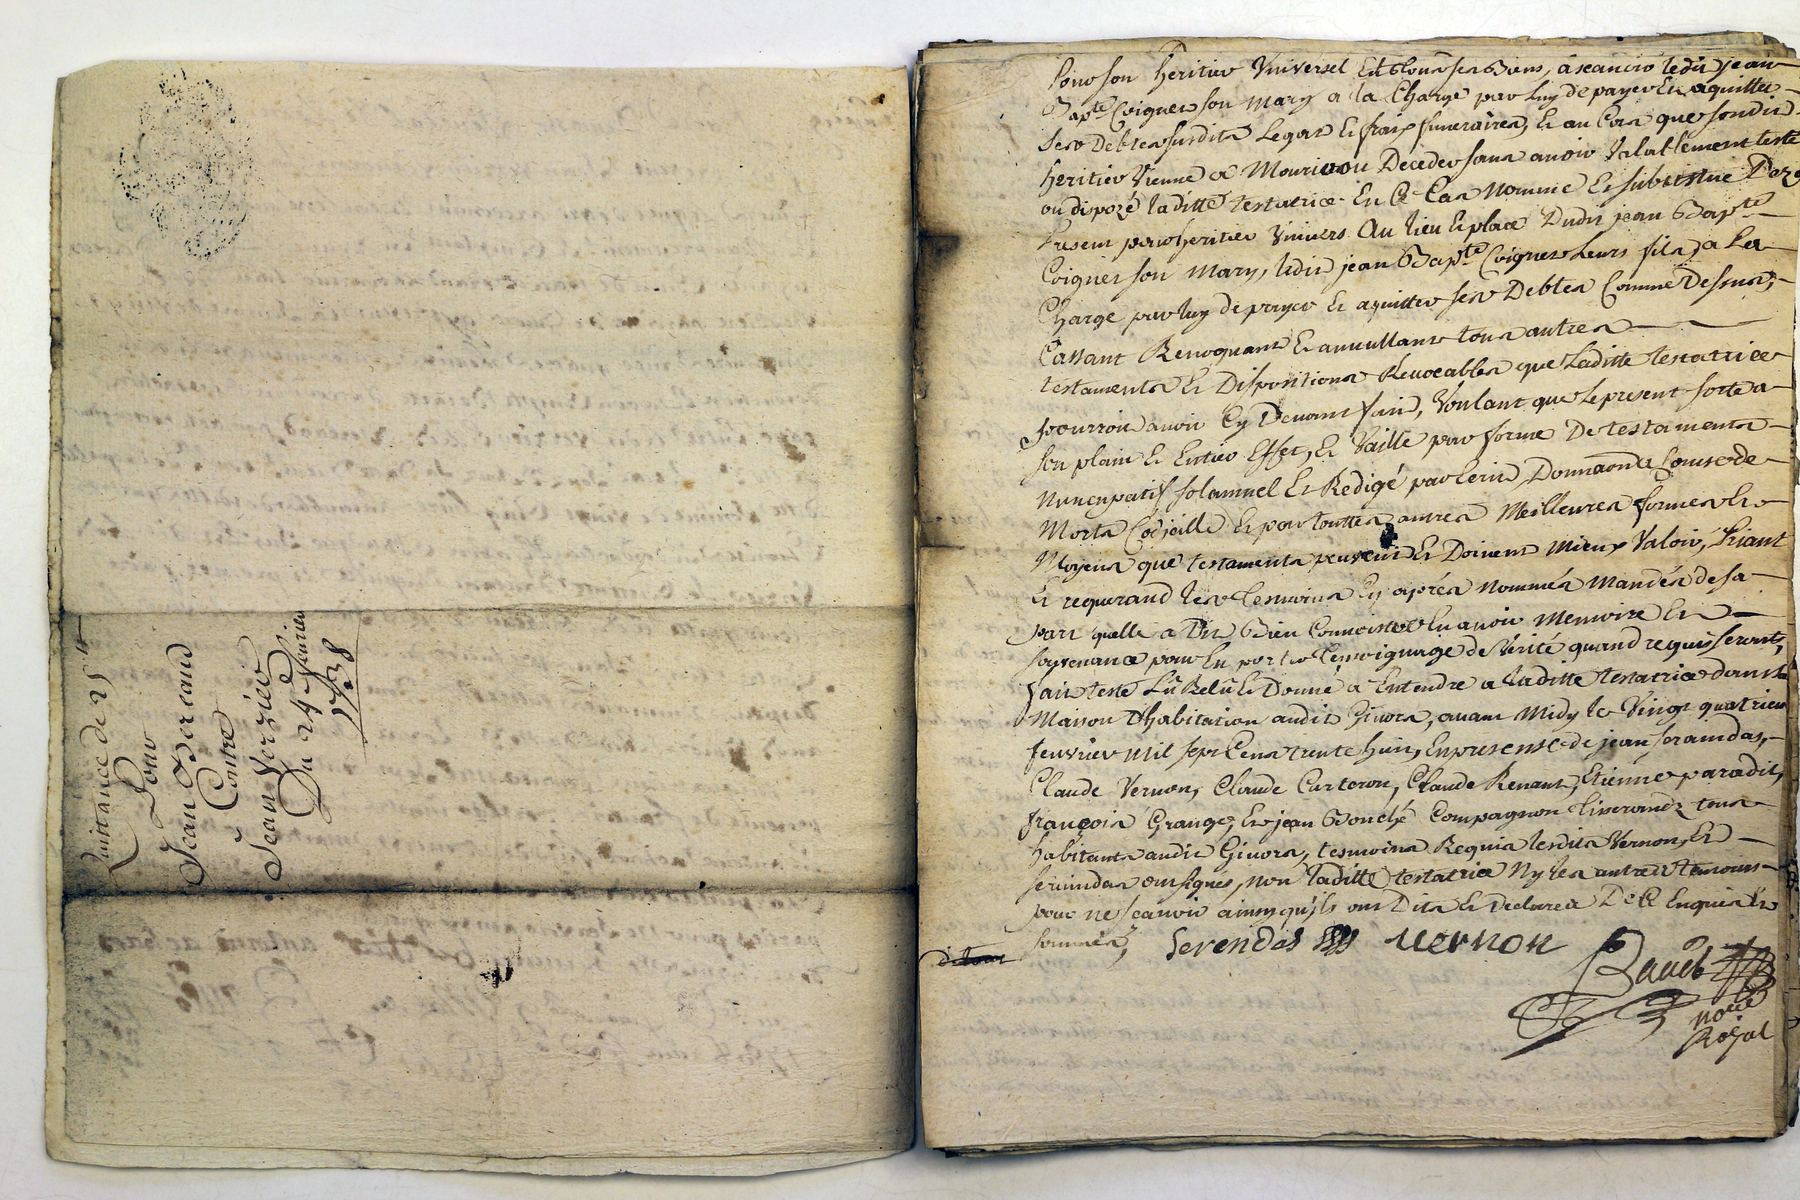 Quittance de 25 #
Pour
Jean
Contre
Jean Verzieu
Du 24e fevrier
1738
Pour son heritier Universel En tous ses Biens, a scavoir ledit jean
Bapte Coignet son mary a la Charge par luy de payer Et aquitter
Ses Debtes susdits Legats Et frais funeraires, Et au Cas que sondit
heritier Vienne a Mourir ou Deceder sans avoir Valablement testé
ou dispozé laditte testatrice En Ce Cas Nomme Et substitue Dez a
Present pour heritier Univers. Au lieu Et place Dudit jean Bapte
Coignet son Mary, ledit jean Bapte Coignet Leurs fils, a La
Charge par luy de payer Et aquitter ses Debtes Comme Dessus,
Cassant Revoquant Et annullant tous autres
testaments Et Dispositions Revocables que Laditte testatrice
pourroit avoir Cy Devant fait, Voulant que Le present sorte a
son plain Et Entier Effet, Et Vaille par forme De testament
Nuncupatif solamnel Et Redigé par Ecrit, Donnaon a Cause de
Mort, Codicille Et par touttes autres Meilleures formes Et
Moyens que testaments peuvent Et Doivent Mieux Valoir, Priant
Et requerand Les temoins Cy aprés nommés mandés de sa
part quelle a Dit Bien Connoistre En avoir Memoire Et
souvenance pour En porter temoignage de Vérité quand requis seronts,
fait testé Lû Relû Et Donné a Entendre a laditte testatrice dans sa
Maison D'habitation audit Givors, avant Midy le Vingt quatrieme
fevrier mil sept Cens trente huit, En presense de jean Serandas,
Claude Vernon, Claude Carteron, Claude Renant, Etienne paradit,
françois Grange, Et jean Bonché Compagnon tisserands tous
habitants audit Givors, tesmoins Requis lesdits Vernon, Et
serandas ont signés, non laditte testatrice Ny les autres temoins
pour ne scavoir ainsy qu'ils ont Dits Et Declarés De Ce Enquis Et
sommés,
Serendas vernon
nore
Royal